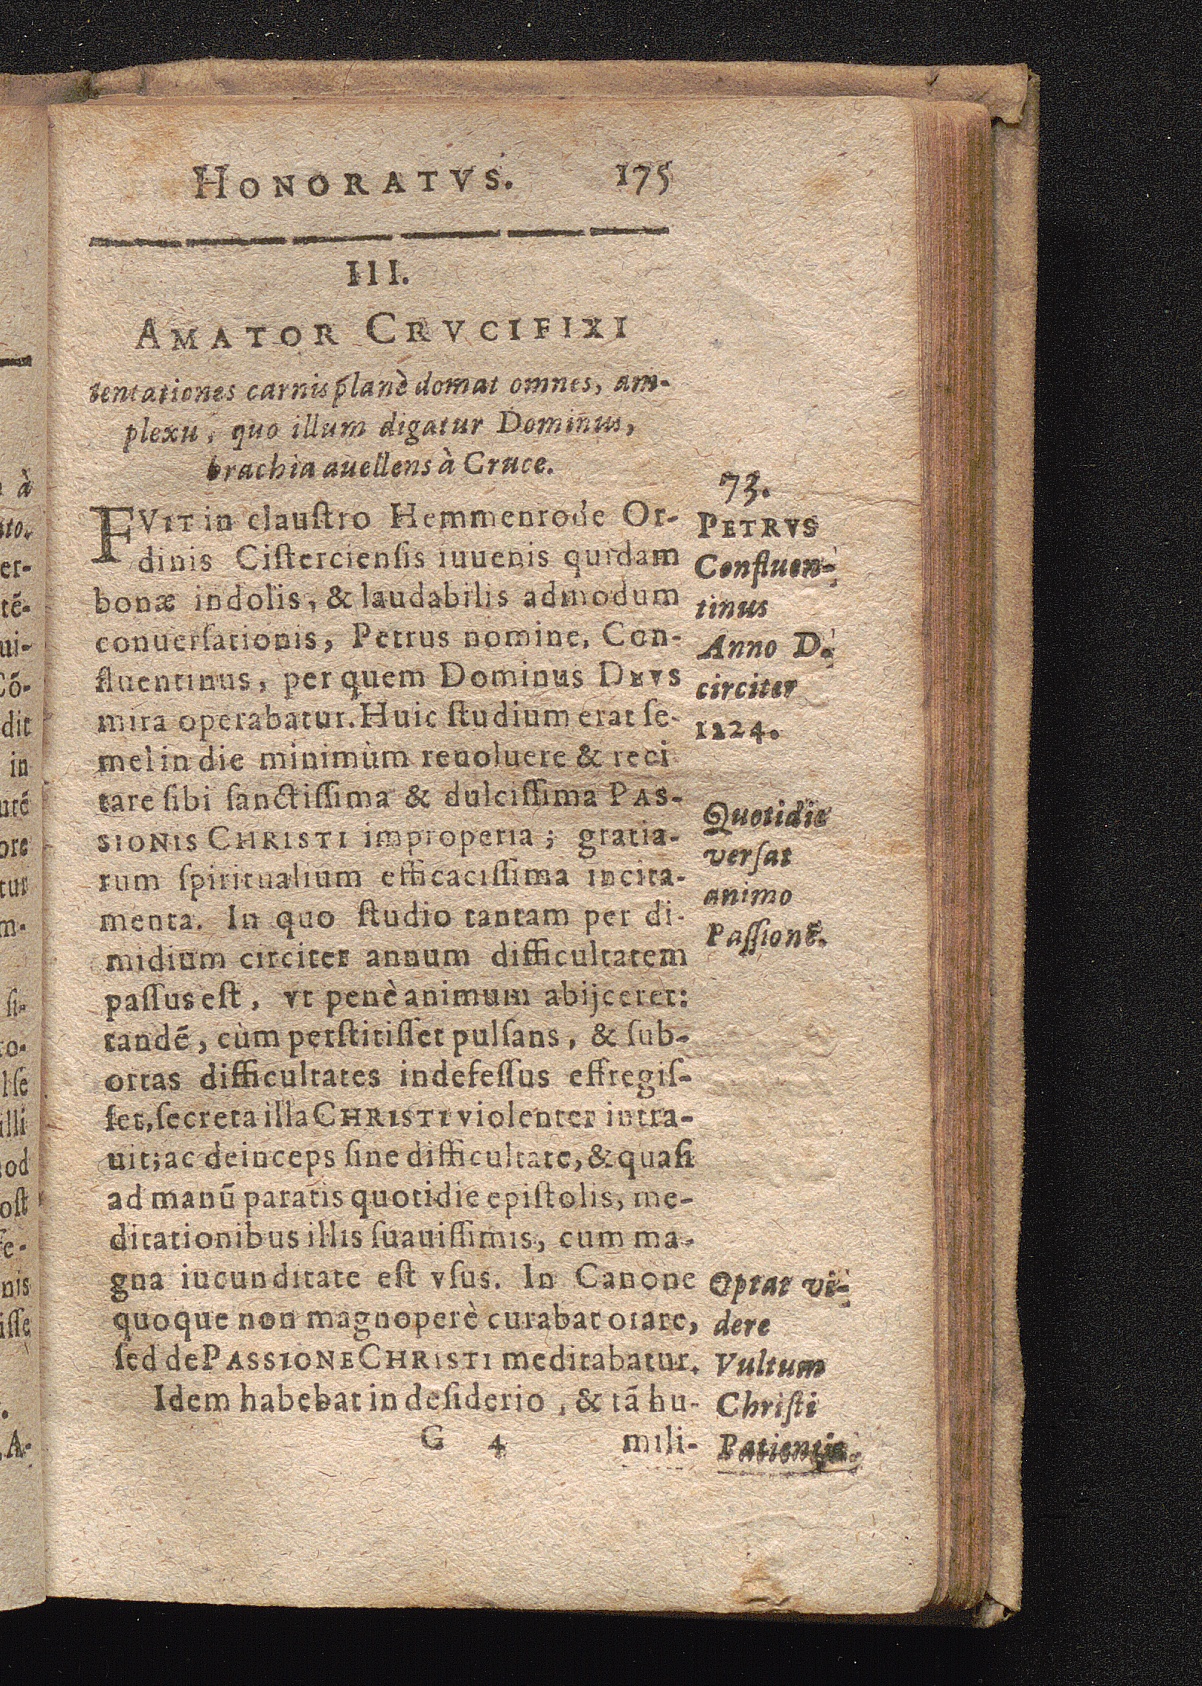 HONORATVS. 175
III.
AMATOR CRVCIFIXI
tentationes carnis planè domat omnes, am-
plexu, quo illum digatur Dominus,
brachia auellens à Cruce.
FVIT in clauſtro Hemmenrode Or-
dinis Ciſtercienſis iuuenis quidam
bonæ indolis, & laudabilis admodum
conuerſationis, Petrus nomine, Con-
fluentinus, per quem Dominus DEVS
mira operabatur. Huic ſtudium erat ſe-
mel in die minimùm reuoluere & reci
tare ſibi ſanctiſſima & dulciſſima PAS-
SIONIS CHRISTI improperia; gratia-
rum ſpiritualium efficaciſſima incita-
menta. In quo ſtudio tantam per di-
midium circiter annum difficultatem
paſſus eſt, vt penè animum abijceret:
tandē, cùm perſtitiſſet pulſans, & ſub-
ortas difficultates indefeſſus effregiſ-
ſet, ſecreta illa CHRISTI violenter intra-
uit; ac deinceps ſine difficultate, & quaſi
ad manū paratis quotidie epiſtolis, me-
ditationibus illis ſuauiſſimis, cum ma-
gna iucunditate eſt vſus. In Canone
quoque non magnoperè curabat orare,
ſed de PASSIONE CHRISTI meditabatur.
Idem habebat in deſiderio, & tā hu-
G 4 mili-
73.
PETRVS
Confluen-
tinus
Anno D.
circiter
1224.
Quotidie
verſat
animo
Paſſionē.
Optat vi-
dere
Vultum
Chriſti
Patientis.
à
er-
tē-
ui-
Cō-
dit
in
utē
ore
tur
m-
ſi-
ro-
lſe
illi
od
oſt
ſe-
nis
iſſe
A-